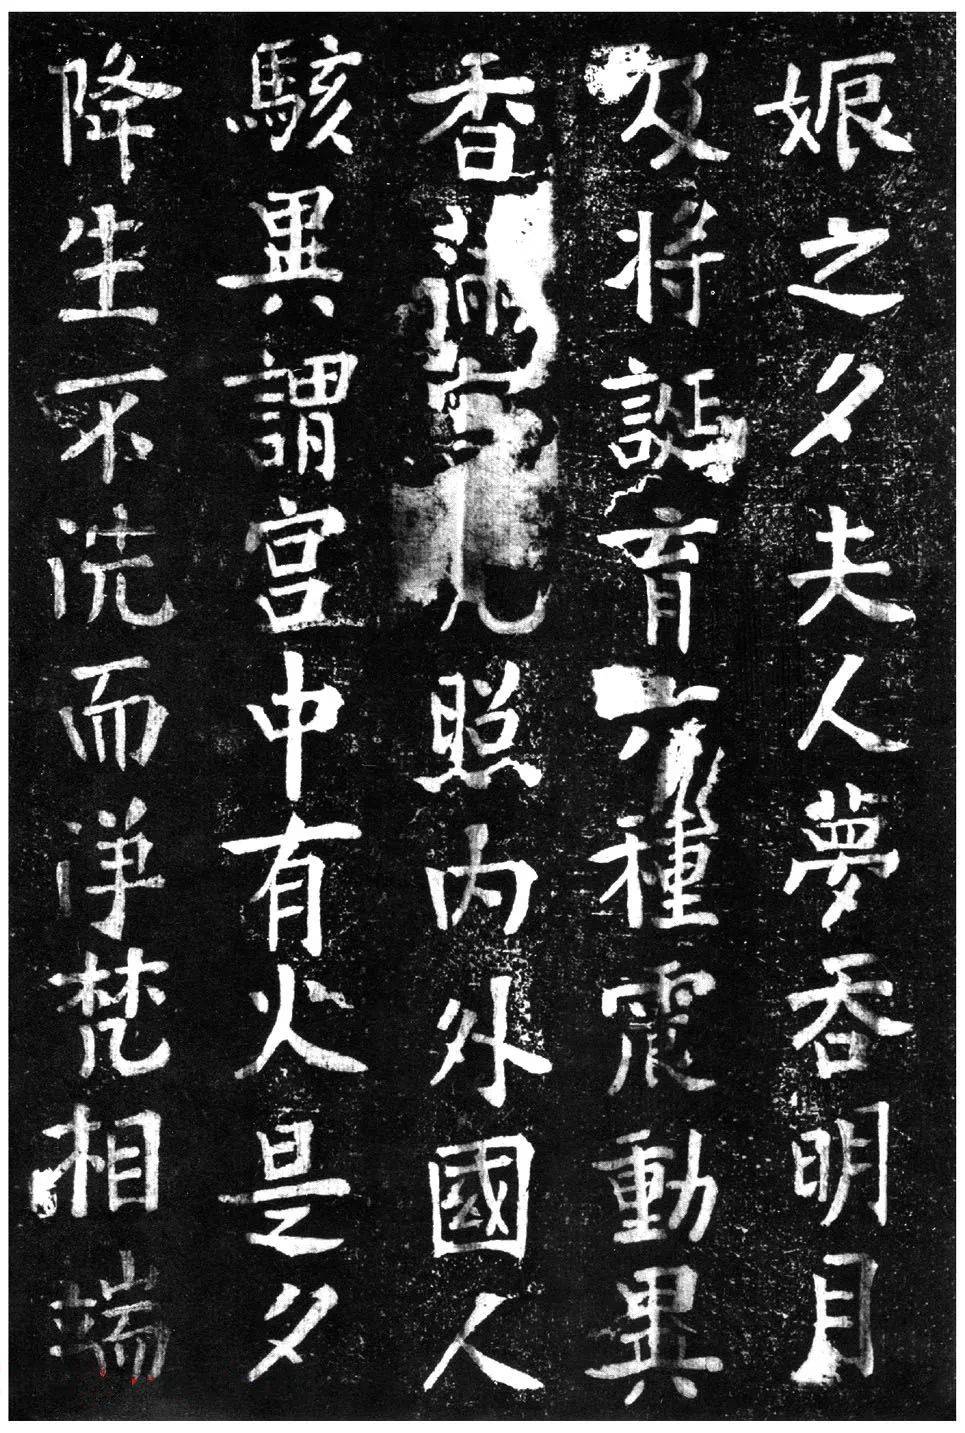 娠之夕夫人夢吞明月
及将誕育六種震動異
香滿室光照内外國人
駭異謂宫中有火是夕
降生不洗而浄梵相端